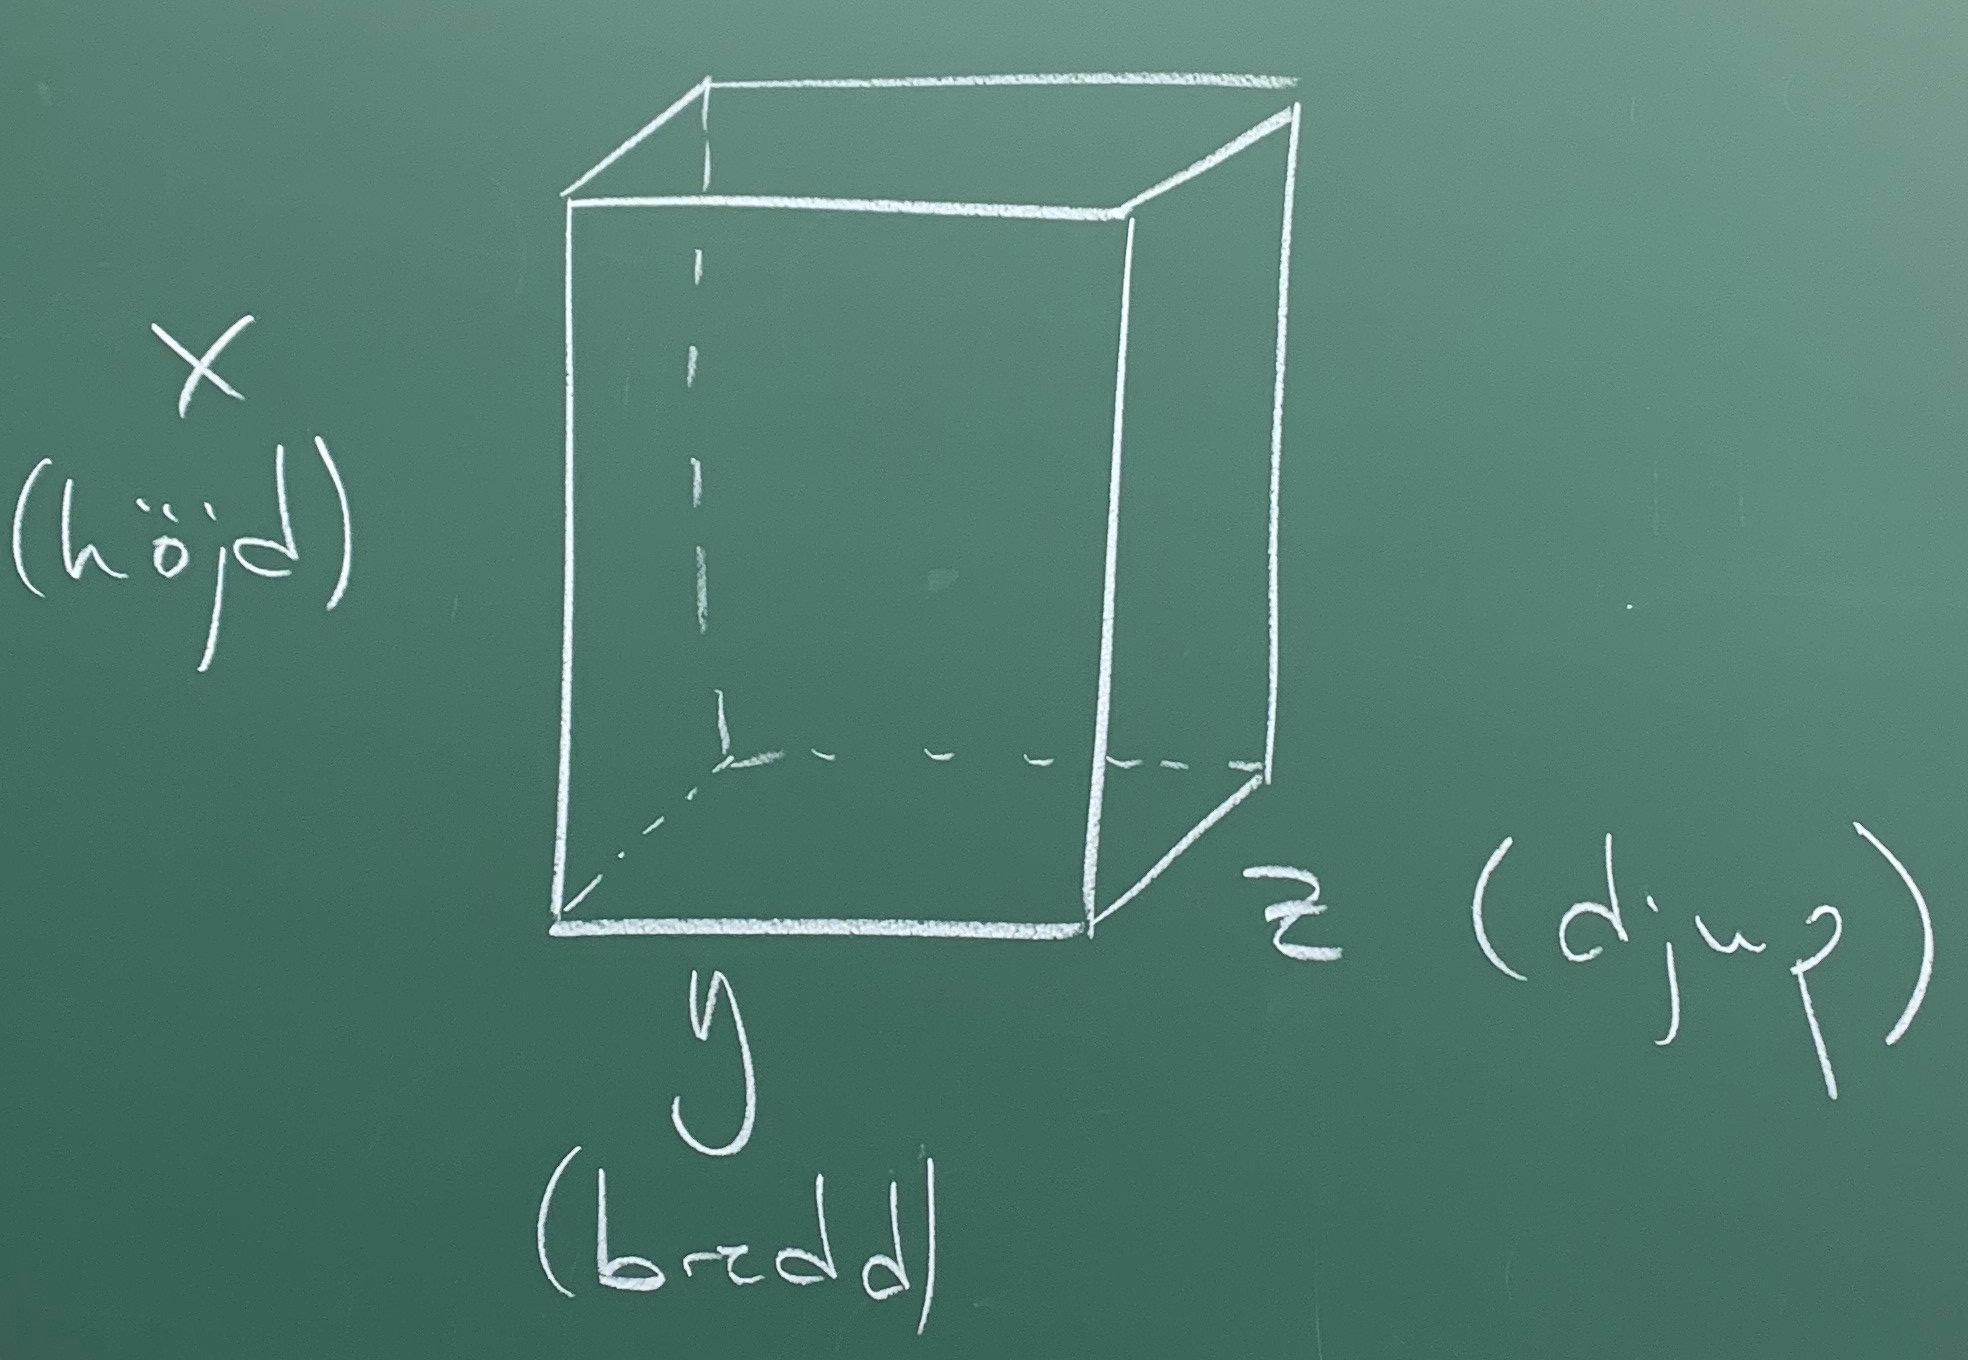 x
(höjd)
z (djup)
y
(bredd)